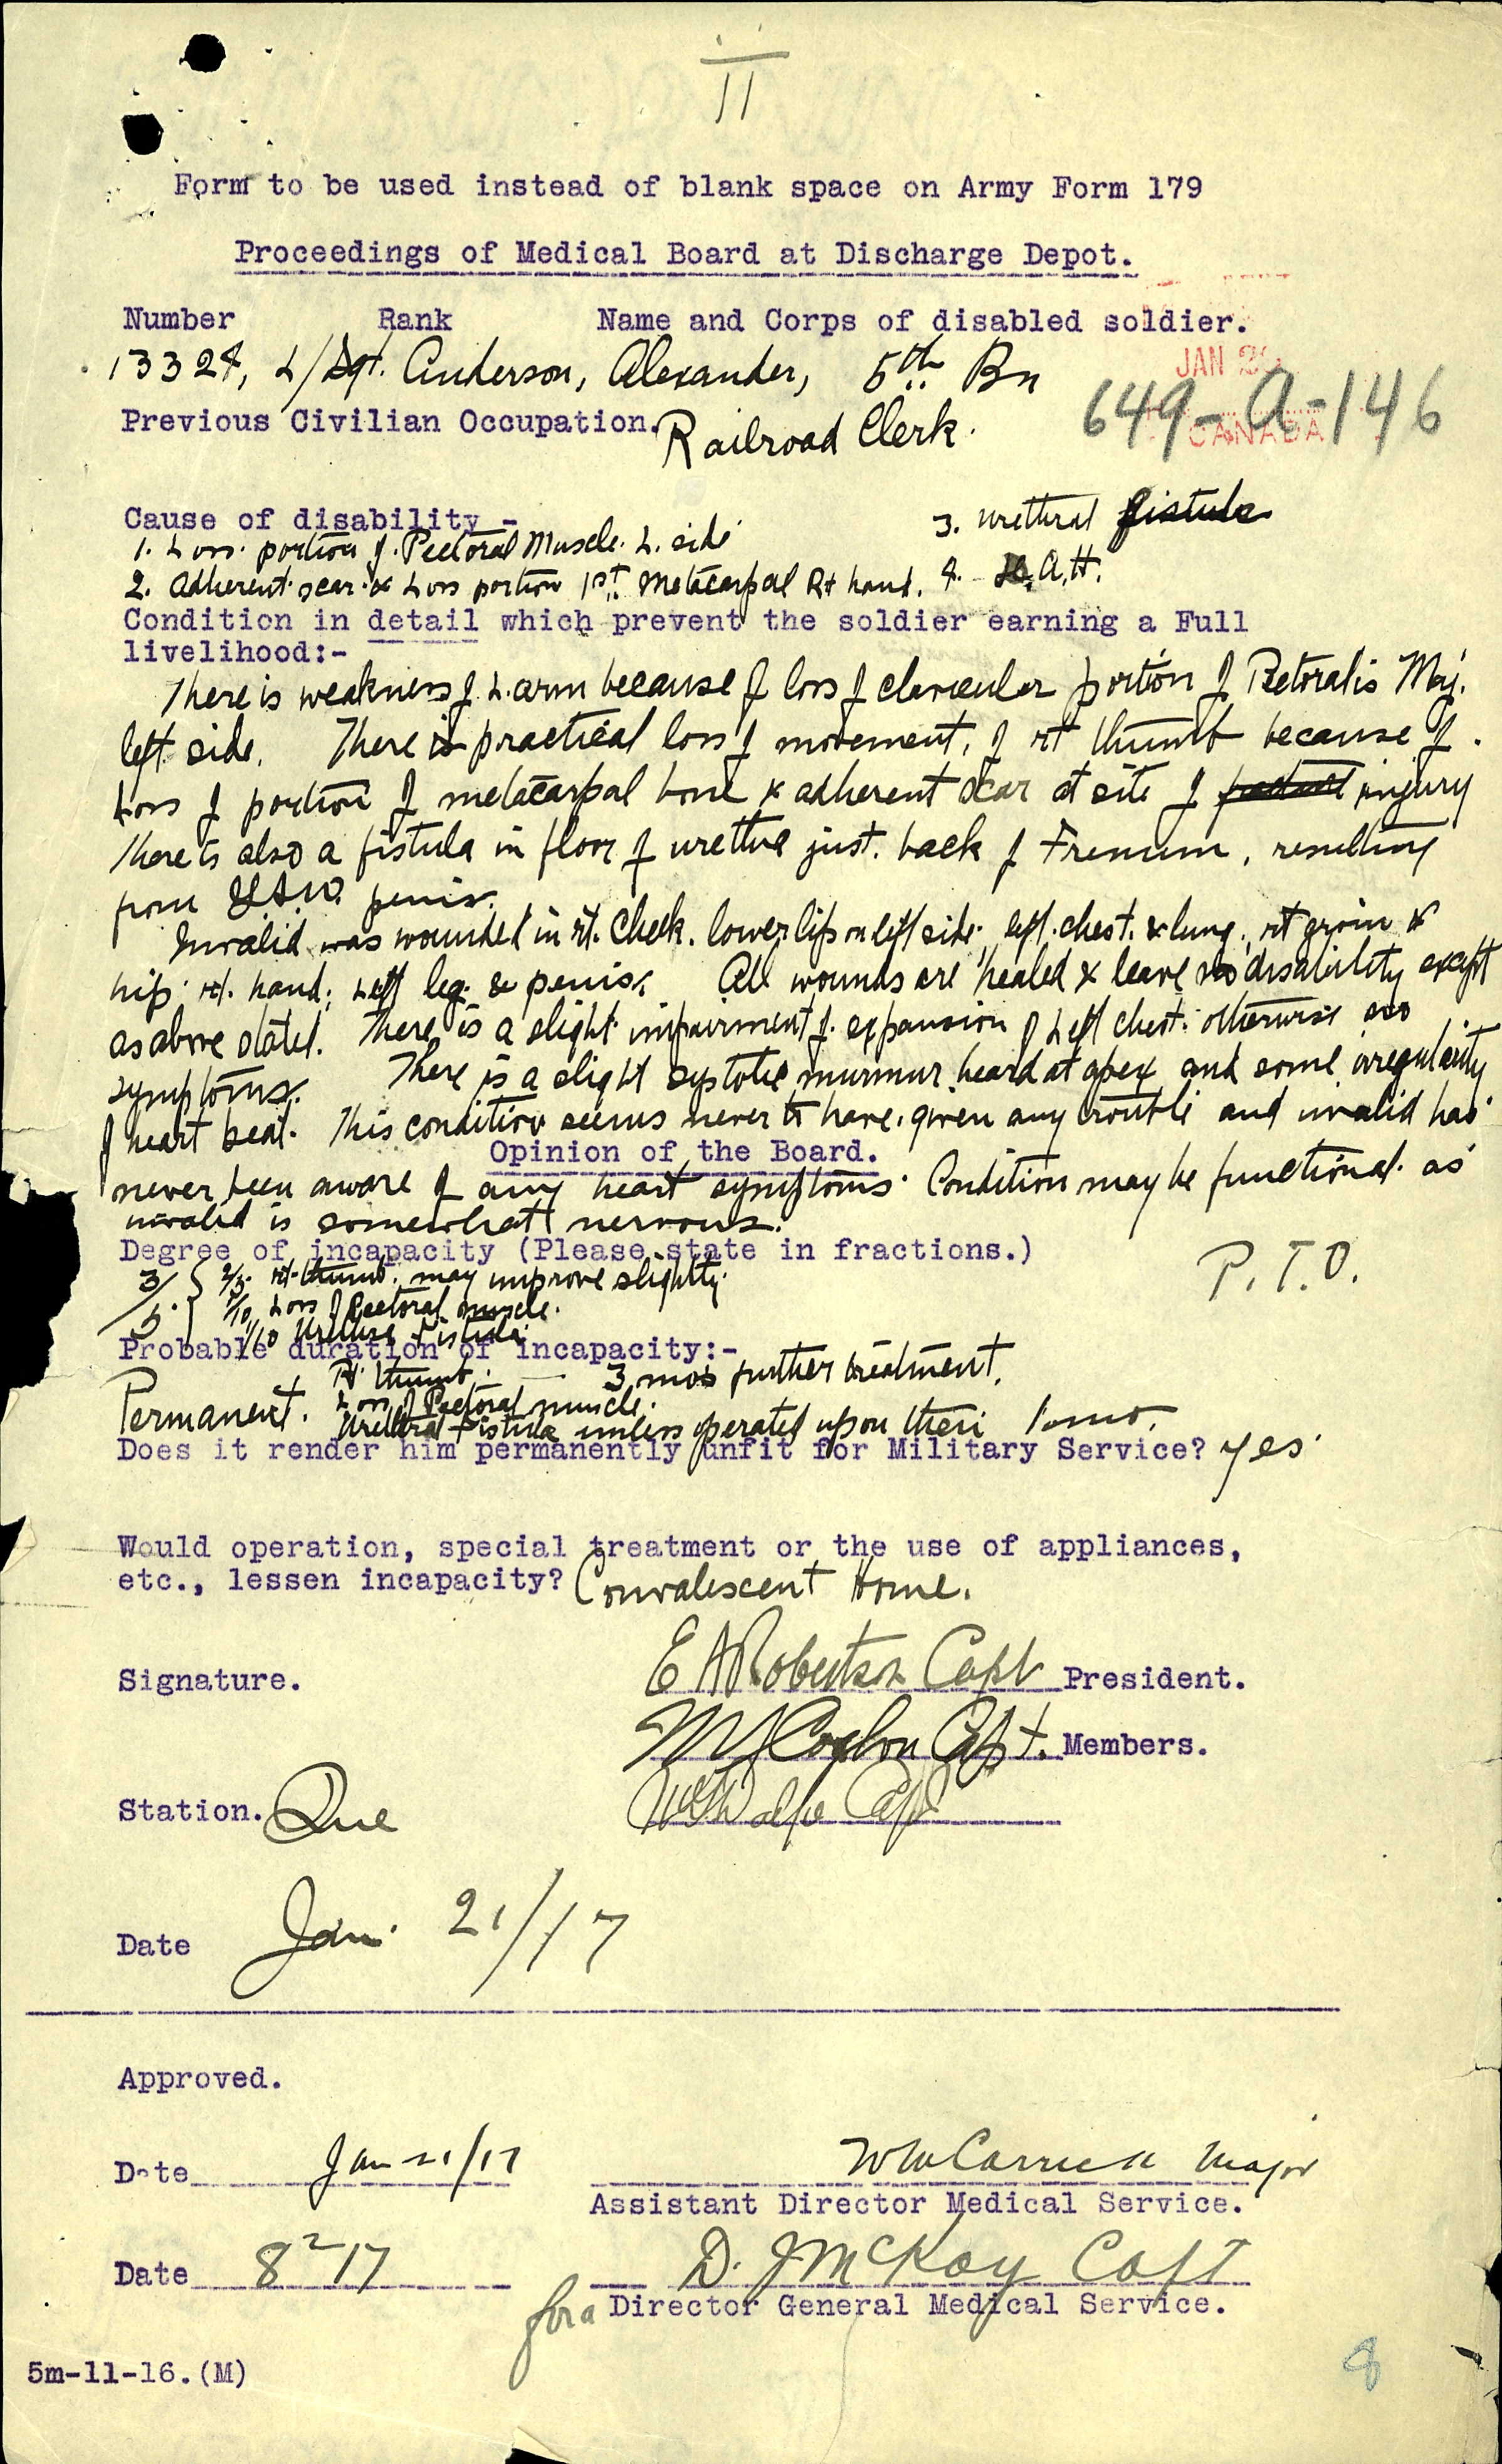 II
Form to be used instead of blank space on Army Form 179
Proceedings of Medical Board at Discharge Depot.
Number Rank Name and Corps of disabled soldier.
13328, L/Sgt. Anderson, Alexander, 5th Bn
JAN 2
649-A-146
CANADA
Previous Civilian Occupation. Railroad Clerk.
Cause of disability -
1. Loss. portion of. Pectoral Muscle. L. side
3. Urethral fistula
2. Adherent scar & Loss portion 1st Metacarpal Rt hand. 4. D.A.H.
Condition in detail which prevent the soldier earning a Full
livelihood:-
There is weakness of L. arm because of loss of clavicular portion of Pectoralis Maj.
left side. There is practical loss of movement, of rt thumb because of
Loss of portion of metacarpal bone & adherent scar at site of injury
There is also a fistula in floor of urethra just. back of Frenum, resulting
from G.S.W. penis.
Invalid was wounded in rt. Cheek. lower lip on left side. left. chest. & lung, rt groin &
hip: rt. hand; Left leg. & penis. All wounds are healed & leave no disability except
as above stated. There is a slight impairment of. expansion of Left Chest. otherwise no
symptoms. There is a slight systolic murmur heard at apex and some irregularity
of heart beat. This condition seems never to have. given any trouble and invalid has
Opinion of the Board.
never been aware of any heart symptoms. Condition may be functional as
invalid is somewhat nervous.
Degree of incapacity (Please state in fractions.)
P.T.O.
3/5 { 2/5. rt. thumb. may improve slightly.
1/10 Loss of Pectoral muscle.
1/10 Urethra Fistula.
Probable duration of incapacity:-
Rt. thumb. — 3 mos further treatment.
Permanent. Loss of Pectoral muscle.
Urethral Fistula unless operated upon then
Does it render him permanently unfit for Military Service? Yes
Would operation, special treatment or the use of appliances,
etc., lessen incapacity? Convalescent Home.
Signature. E A Robertson Capt President.
Capt. Members.
Station. Que Capt
Date Jan. 21/17
Approved.
Date Jan 21/17 Major
Assistant Director Medical Service.
Date 8 2 17 D. J McKay Capt
for a Director General Medical Service.
5m-11-16.(M)
8